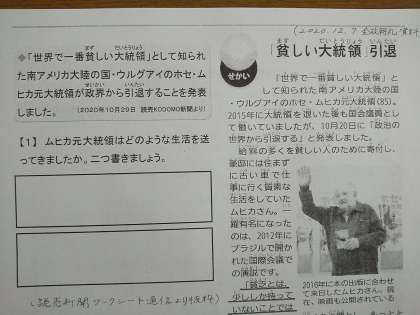 (2020.12.7 全校朝礼資料
◆「世界で一番貧しい大統領」として知られ
た南アメリカ大陸の国・ウルグアイのホセ・ム
ヒカ元大統領が政界から引退することを発表
しました。 (2020年10月29日 読売KODOMO新聞より)
【1】 ムヒカ元大統領はどのような生活を送
ってきましたか。二つ書きましょう。
(読売新聞ワークシート通信より抜粋)
「貧しい大統領」引退
せかい
「世界で一番貧しい大統領」と
して知られた南アメリカ大陸の国
・ウルグアイのホセ・ムヒカ元大統領(85)。
2015年に大統領を退いた後も国会議員とし
て働いていましたが、10月20日に「政治の
世界から引退する」と発表しました。
給料の多くを貧しい人のために寄付し、
豪邸には住まず
に古い車で仕
事に行く質素な
生活をしていた
ムヒカさん。一
躍有名になった
のは、2012年に
ブラジルで開か
れた国際会議で
の演説です。
「貧乏とは、
少ししか持って
いないことでは
2016年に本の出版に合わせ
て来日したムヒカさん。現
在、映画も公開されている